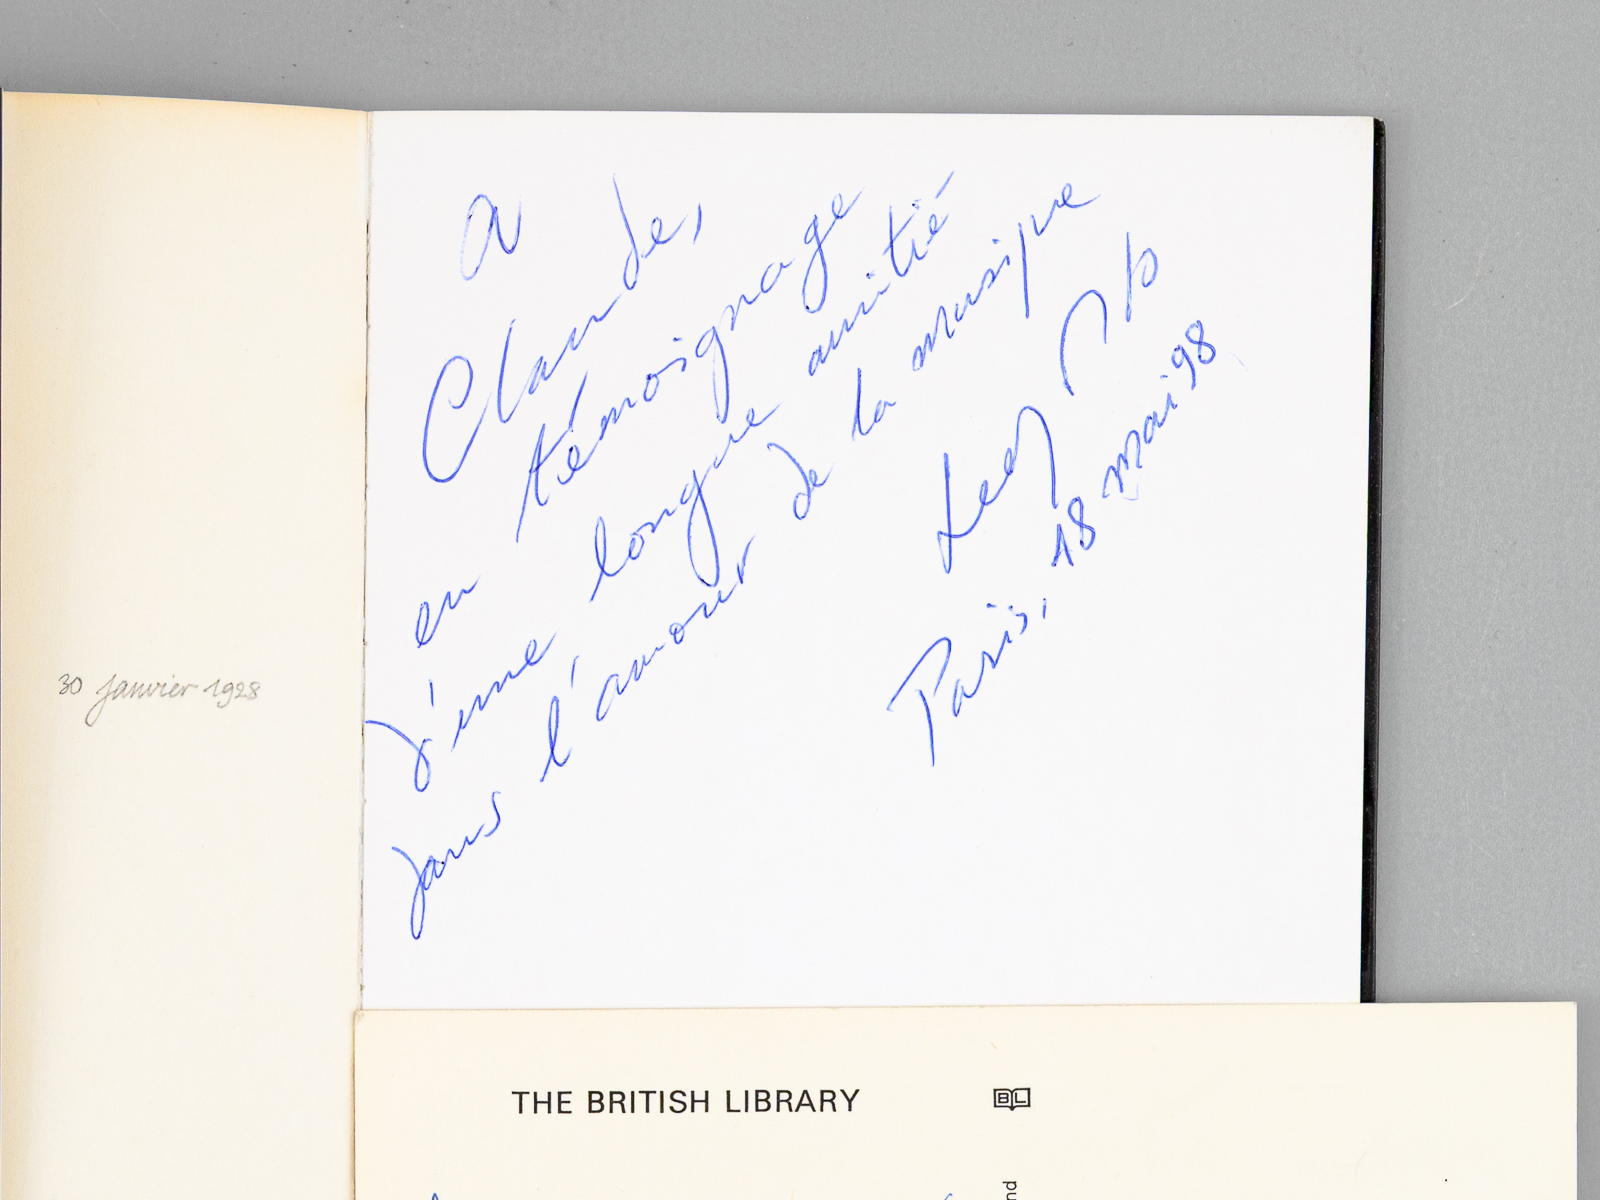 30 janvier 1928
A
Claudes,
en témoignage
d'une longue amitié
dans l'amour de la musique
Paris, 18 mai 98
THE BRITISH LIBRARY
BL
nd